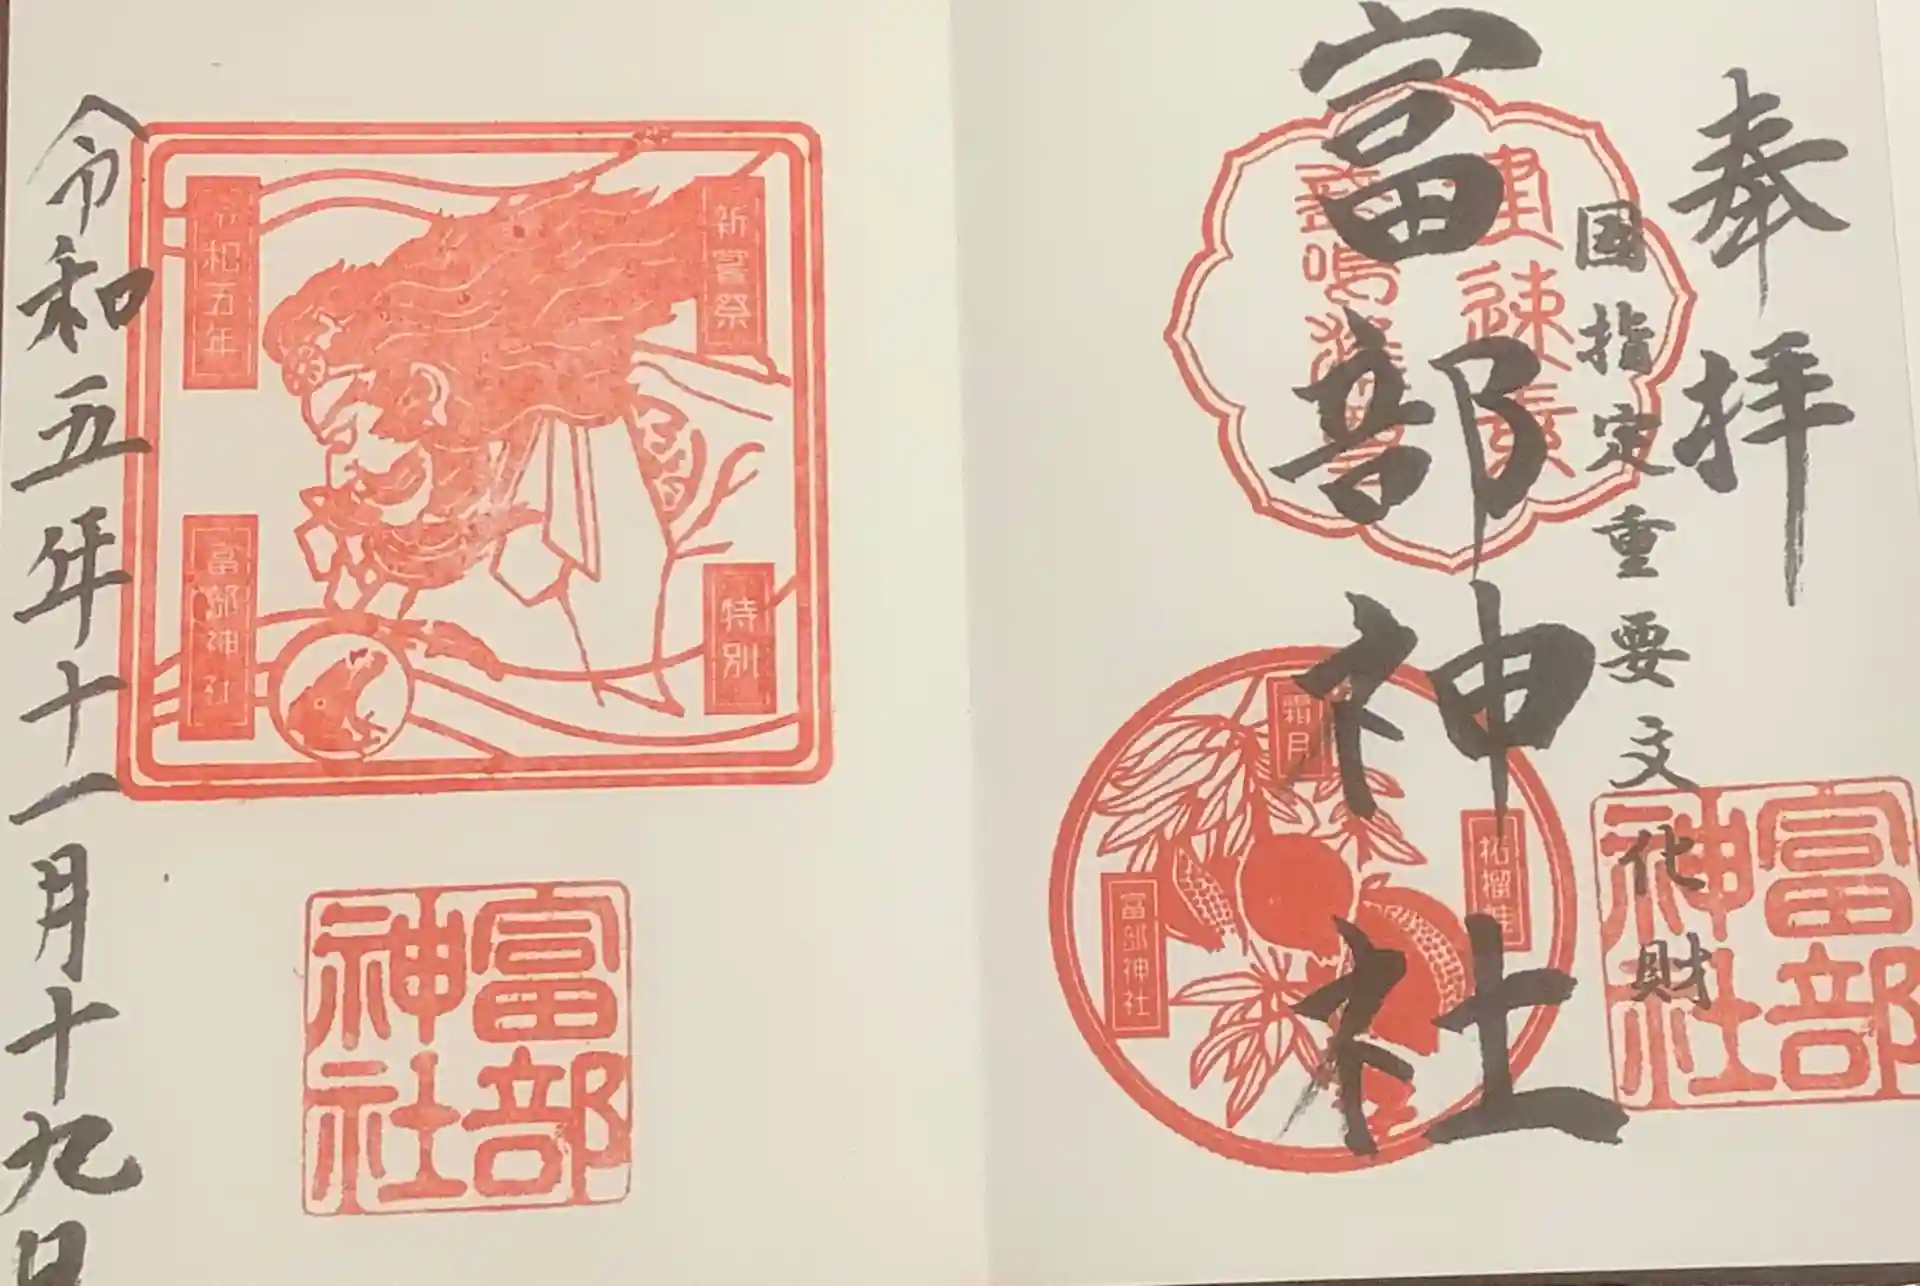 奉拝
国指定重要文化財
富部神社
建速素
盞嗚
霜月
富部神社
富部
神社
新嘗祭
特別
令和五年
富部神社
富部
神社
令和五年十一月十九日